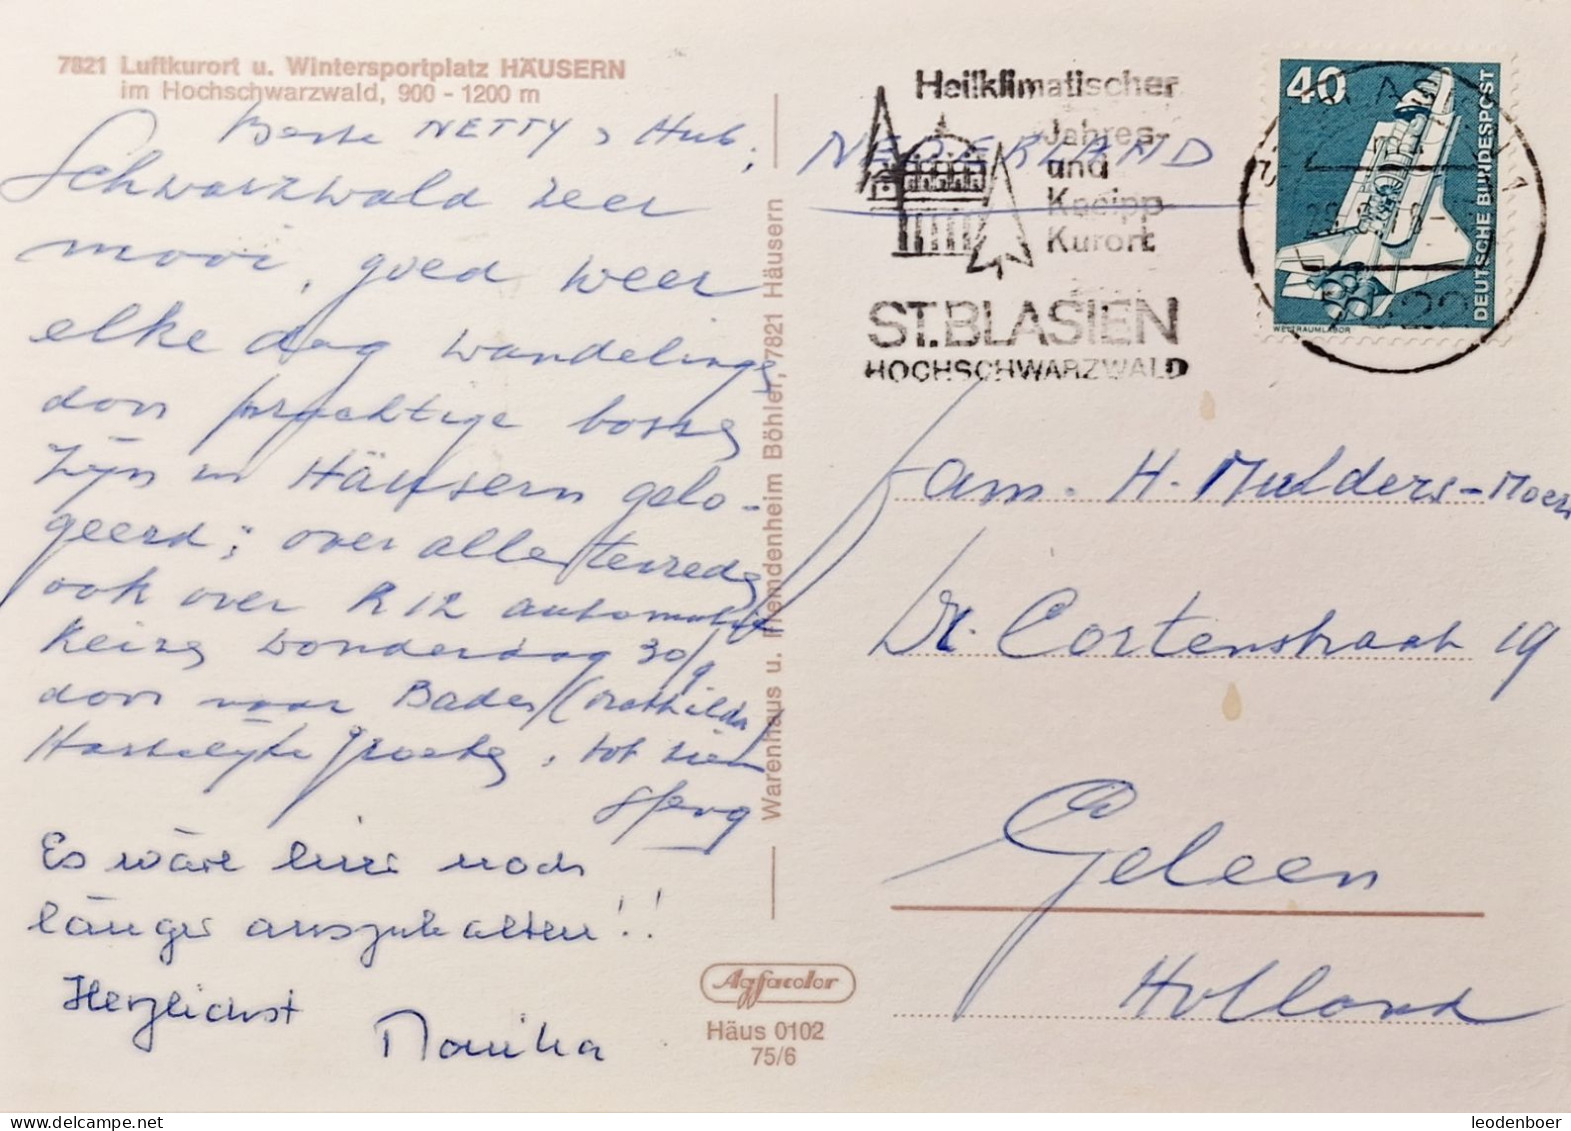 7821 Luftkurort u. Wintersportplatz HÄUSERN
im Hochschwarzwald, 900 - 1200 m
Beste NETTY, Hub,
Schwarzwald zeer
mooi, goed weer
elke dag wandeling
door prachtige
Zijn in Häusern gelo-
geerd; over alle tevreden
ook over R 12
donderdag 30/9
door naar Baden (Mathilda)
Hartelijke groet, tot ziens
Es wäre hier noch
länger auszuhalten!!
Herzlichst
Monika
Warenhaus u. Fremdenheim Böhler, 7821 Häusern
Agfacolor
Häus 0102
75/6
NEDERLAND
Heilklimatischer
Jahres-
und
Kneipp-
Kurort
ST. BLASIEN
HOCHSCHWARZWALD
40
DEUTSCHE BUNDESPOST
WELTRAUMLABOR
Fam. H. Mulders-Moers
Dr. Cortenstraat 19
Geleen
Holland
leodenboer